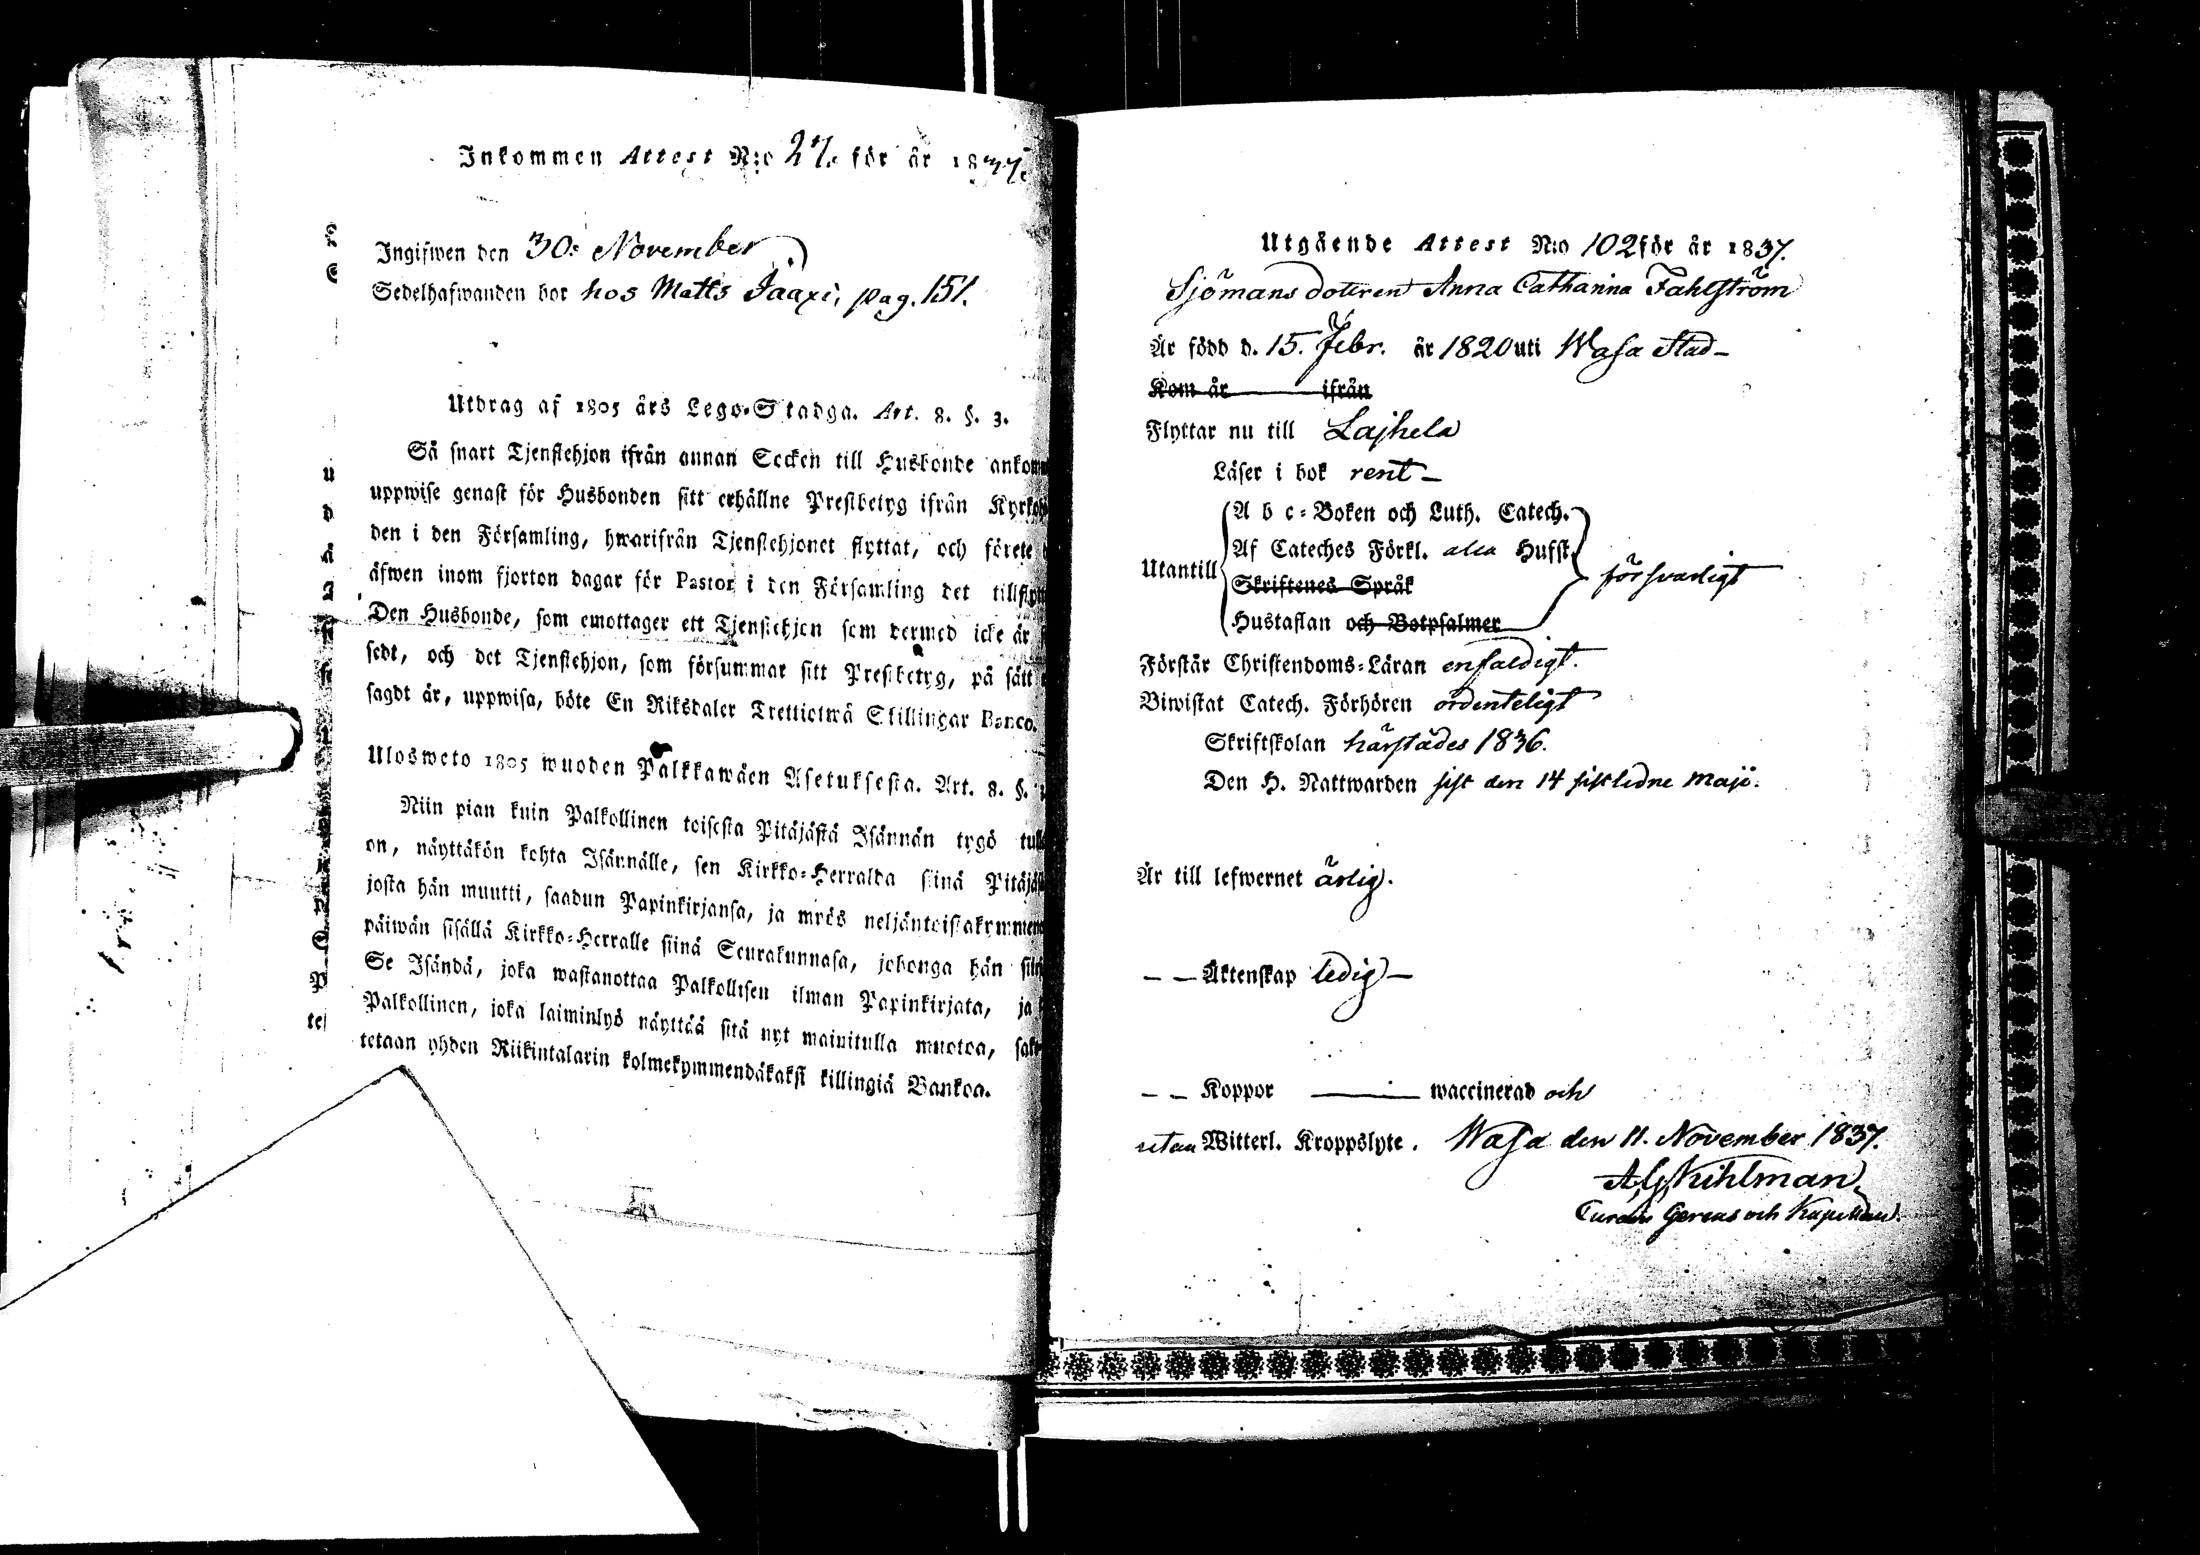 Inkommen Attest N:o för år 1837.
Ingifwen den 30: November
Sedelhafwanden bor hos Matts Jaaxi, pag. 151.
Utdrag af 1805 års Lego-Stadga. Art. 8. §. 3.
Så snart Tjenstehjon ifrån annan Socken till Husbonde
uppwise genast för Husbonden sitt erhållne Prestbetyg ifrån
den i den Församling, hwarifrån Tjenstehjonet flyttat, och förete
äfwen inom fjorton dagar för Pastor i den Församling det
Den Husbonde, som emottager ett Tjenstehjon som dermed icke är
sedt, och det Tjenstehjon, som försummar sitt Prestbetyg, på sätt
sagdt är, uppwisa, böte En Riksdaler Trettiotwå Skillingar Banco.
Ulosweto 1805 wuoden Palkkawäen Asetuksesta. Art. 8. §.
Niin pian kuin Palkollinen toisesta Pitäjästä Isännän tygö
on, näyttäkön kohta Isännälle, sen Kirkko-Herralda siinä
josta hän muutti, saadun Papinkirjansa, ja myös
päiwän sisällä Kirkko-Herralle siinä Seurakunnasa, johonga hän
Se Isändä, joka wastanottaa Palkollisen ilman Papinkirjata, ja
Palkollinen, joka laiminlyö näyttää sitä nyt mainitulla muotoa,
tetaan yhden Riikintalarin kolmekymmendäkaksi killingiä Bankoa.
Utgående Attest N:o 102 för år 1837.
Sjömans dotteren Anna Catharina Fahlström
Är född d. 15. Febr. år 1820 uti Wasa Stad –
Kom år ifrån
Flyttar nu till Lajhela
Läser i bok rent –
A b c-Boken och Luth. Catech.
Af Cateches Förkl. alla Hufst.
Utantill försvarligt
Skriftenes Språk
Hustaflan och Botpsalmer
Förstår Christendoms-Läran enfaldigt.
Biwistat Catech. Förhören ordenteligt
Skriftskolan härstädes 1836.
Den H. Nattwarden sist den 14 sistledne Maji.
Är till lefwernet ärlig.
– – Äktenskap ledig –
– – Koppor — waccinerad och
utan Witterl. Kroppslyte. Wasa den 11. November 1837.
A G Kihlman
Curam Gerens och Kapellan.